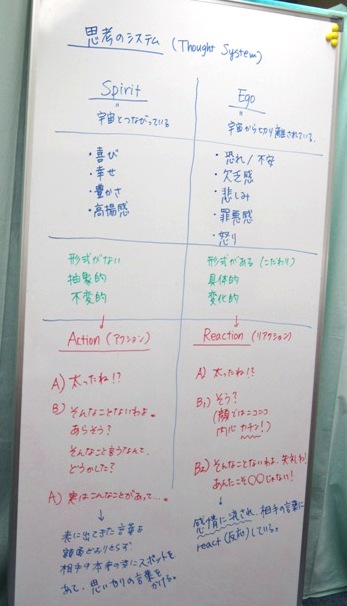 思考のシステム (Thought System)
Spirit
"
宇宙とつながっている
・喜び
・幸せ
・豊かさ
・高揚感
形式がない
抽象的
不変的
Action(アクション)
A) 太ったね!?
B) そんなことないわよ。
あらそう?
そんなこと言うなんて、
どうかした?
A) 実はこんなことがあって…。
表に出てきた言葉を
額面どおりとらず
相手の本手の所にスポットを
あて、思いやりの言葉を
かける。
Ego
"
宇宙から切り離されている.
・恐れ/不安
・欠乏感
・悲しみ
・罪悪感
・怒り
形式がある(こだわり)
具体的
変化的
Reaction(リアクション)
A) 太ったね!?
B1) そう?
(顔ではニコニコ
内心カチン!)
B2) そんなことないわよ. 失礼ね!
あんたこそ○○じゃない!
感情に流され、相手の言葉に
react(反応)している。